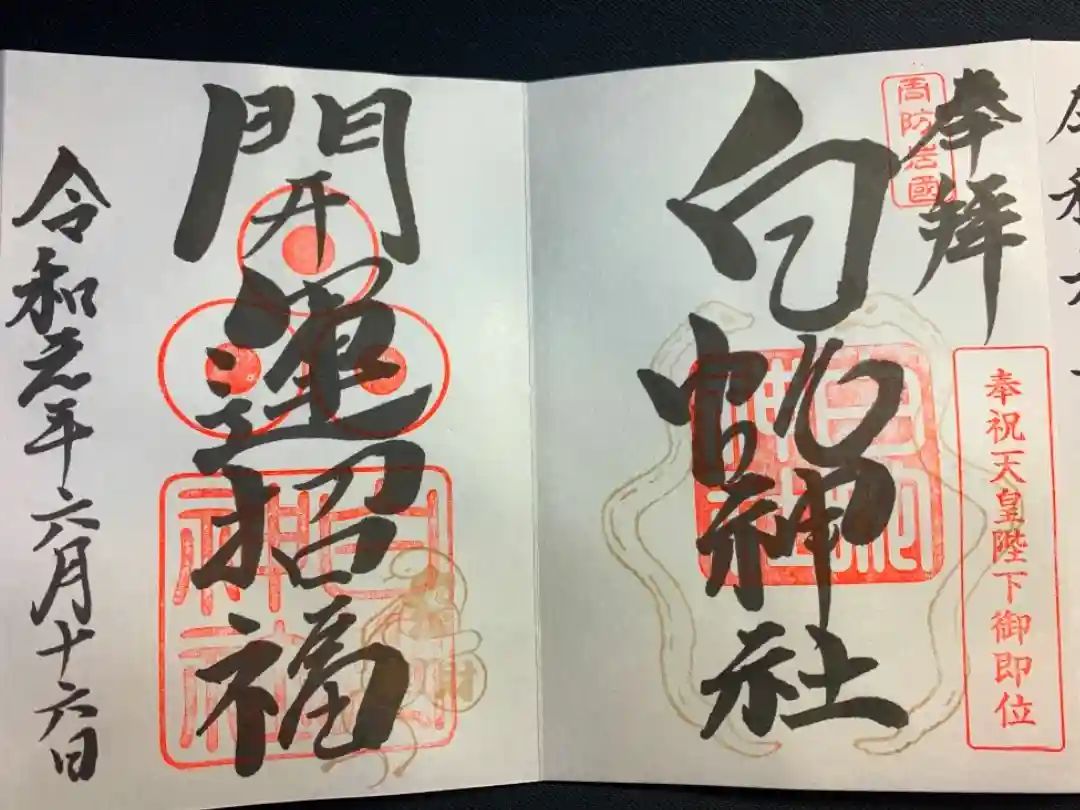 奉拝
周防岩國
奉祝天皇陛下御即位
白蛇神社
開運招福
令和元年六月十六日